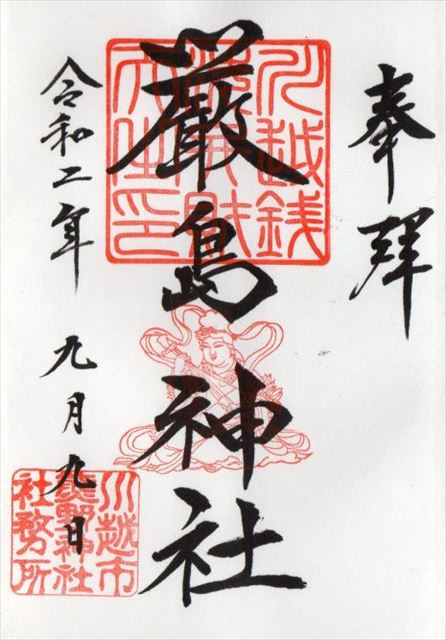 奉拝
厳島神社
令和二年九月九日
川越銭
川越市
熊野神社
社務所